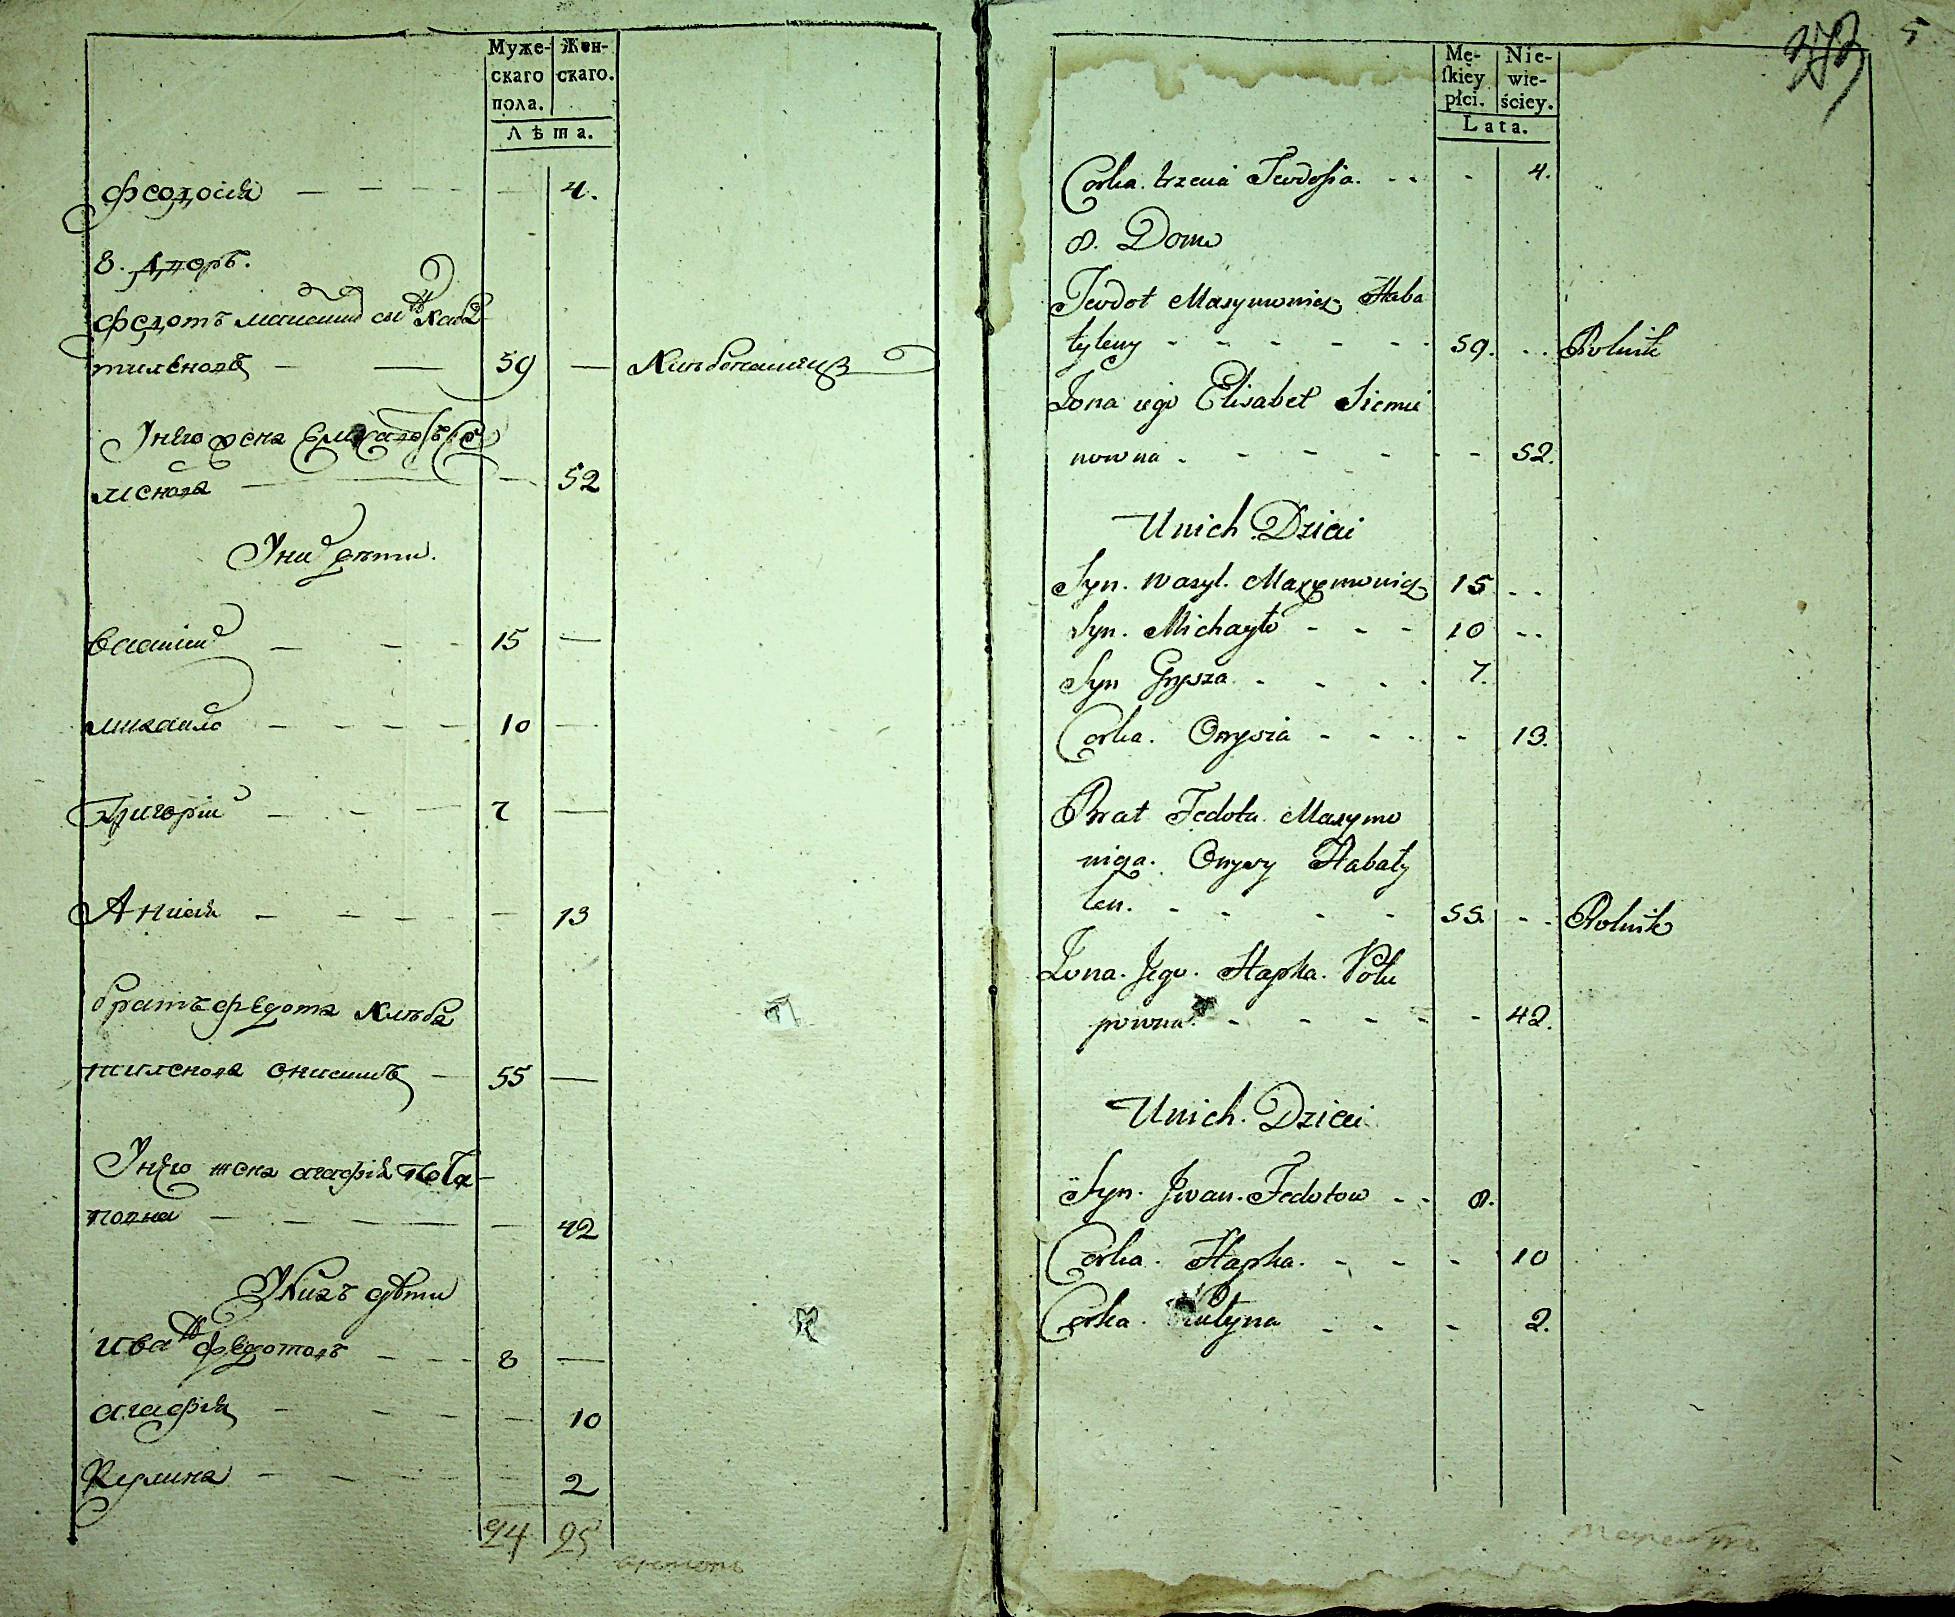 Муже-
скаго
пола.
Жен-
скаго.
Лѣта.
Феодосія 4.
8. Дворъ.
Федотъ
тиленовъ 59
У него жена
менова 52
У ни дѣти.
Василій 15
Михайло 10
Григорій 7
Анисія 13
братъ Федота Хлѣба
тиленова Онисимъ 55
У него жена Агафія Пота
повна 42
У нихъ дѣти
Иванъ Федотовъ 8
Агафія 10
Акулина 2
24 25
373 5
Mę-
ſkiey
płci.
Nie-
wie-
ściey.
Lata.
Corka trzecia Teodosia. 4.
8. Dom
Teodot Maxymowicz Haba
tyleny 59. Rolnik
Żona iego Elisabet Siemie
nowna 52.
U nich Dzieci
Syn. Wasyl. Maxymowicz 15
Syn. Michayło 10
Syn Grysza 7.
Corka. Onysia 13.
Brat Fedota Maxymo
wicza. Onysy Habaty
len. 55. Rolnik
Żona. Jego. Hapka. Pota
powna 42.
U nich. Dzieci
Syn. Jwan. Fedotow 8.
Corka. Hapka. 10
Corka. 2.